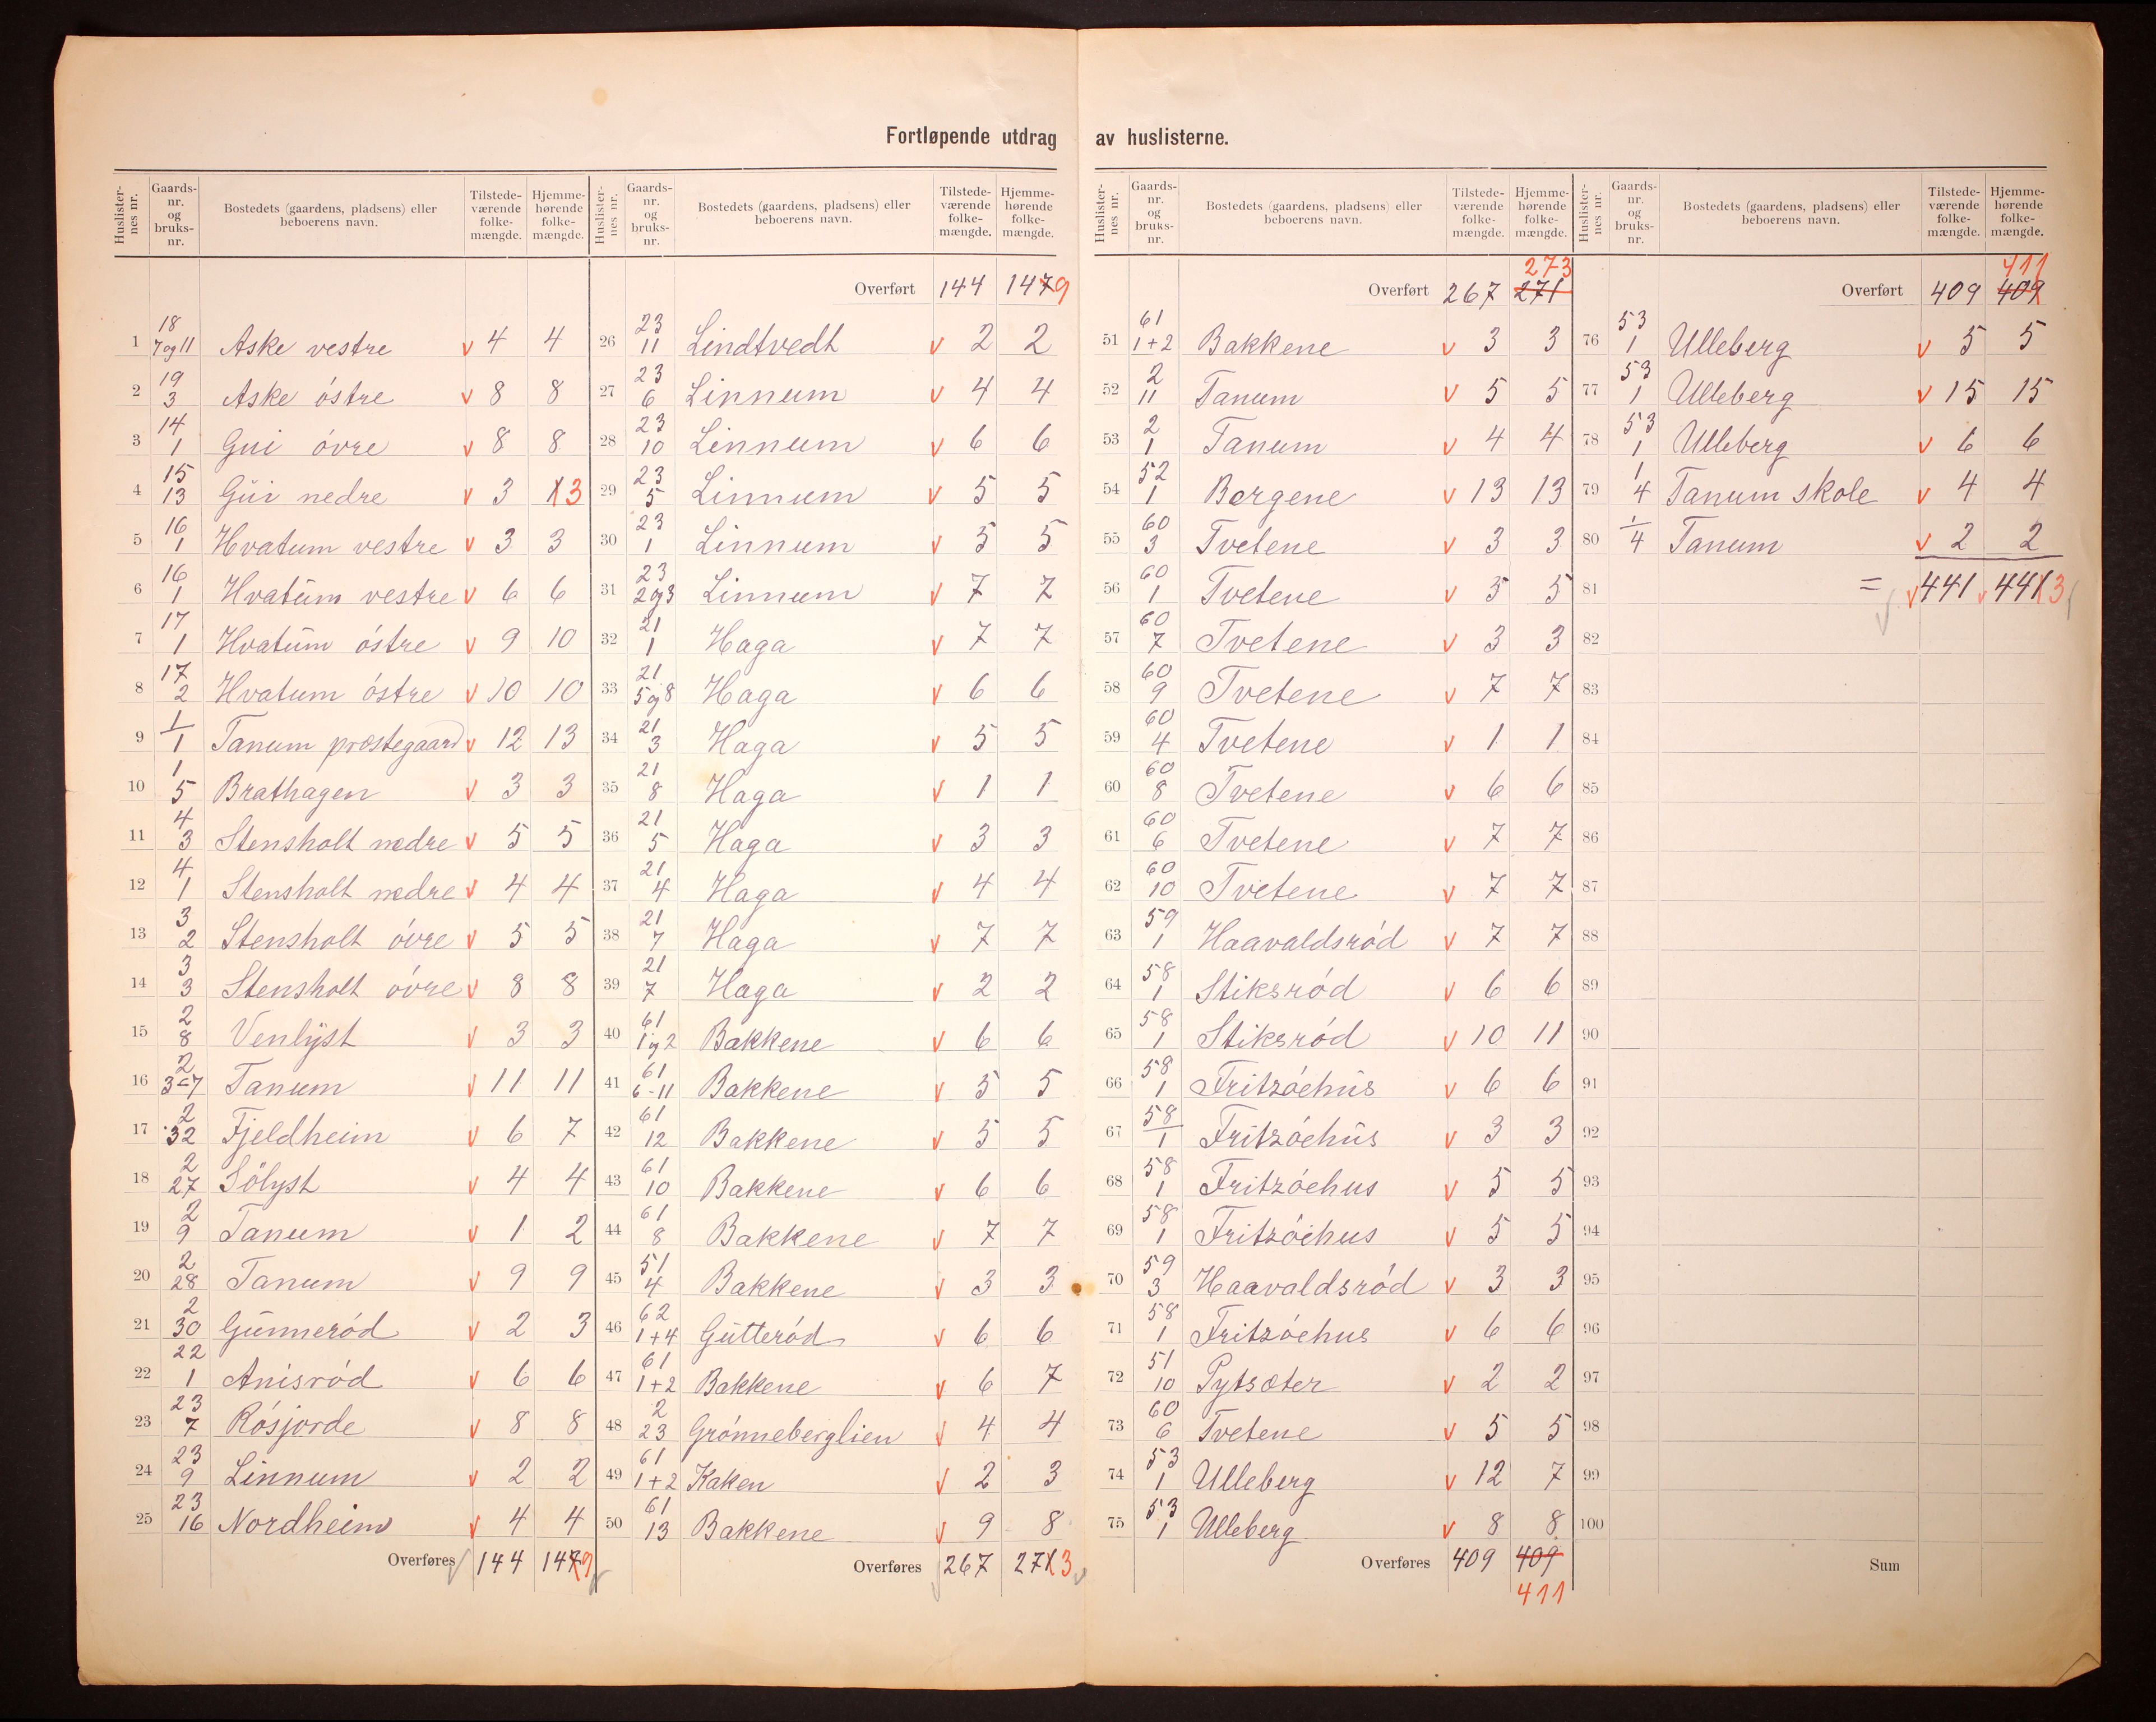 Fortløpende utdrag av huslisterne.
Huslister-nes nr. Gaards-nr. og bruks-nr. Bostedets (gaardens, pladsens) eller beboerens navn. Tilstede-værende folke-mængde. Hjemme-hørende folke-mængde.
1 18 7 og 11 Aske vestre v 4 4
2 19 3 Aske östre v 8 8
3 14 1 Gui övre v 8 8
4 15 13 Gui nedre v 3 3
5 16 1 Hvatum vestre v 3 3
6 16 1 Hvatum vestre v 6 6
7 17 1 Hvatum östre v 9 10
8 17 2 Hvatum östre v 10 10
9 1 1 Tanum prostegaard v 12 13
10 1 5 Brathagen v 3 3
11 4 3 Stensholt nedre v 5 5
12 4 1 Stensholt nedre v 4 4
13 3 2 Stensholt övre v 5 5
14 3 3 Stensholt övre v 8 8
15 2 8 Venlyst v 3 3
16 2 3-7 Tanum v 11 11
17 2 32 Fjeldheim v 6 7
18 2 27 Sölyst v 4 4
19 2 9 Tanum v 1 2
20 2 28 Tanum v 9 9
21 2 30 Gunneröd v 2 3
22 22 1 Anisröd v 6 6
23 23 7 Rösjorde v 8 8
24 23 9 Linnum v 2 2
25 23 16 Nordheim v 4 4
Overføres 144 147 9
Huslister-nes nr. Gaards-nr. og bruks-nr. Bostedets (gaardens, pladsens) eller beboerens navn. Tilstede-værende folke-mængde. Hjemme-hørende folke-mængde.
Overført 144 147 9
26 23 11 Lindtvedt v 2 2
27 23 6 Linnum v 4 4
28 23 10 Linnum v 6 6
29 23 5 Linnum v 5 5
30 23 1 Linnum v 5 5
31 23 2 og 3 Linnum v 7 7
32 21 1 Haga v 7 7
33 21 5 og 8 Haga v 6 6
34 21 3 Haga v 5 5
35 21 8 Haga v 1 1
36 21 5 Haga v 3 3
37 21 4 Haga v 4 4
38 21 7 Haga v 7 7
39 21 7 Haga v 2 2
40 61 1 og 2 Bakkene v 6 6
41 61 6-11 Bakkene v 5 5
42 61 12 Bakkene v 5 5
43 61 10 Bakkene v 6 6
44 61 8 Bakkene v 7 7
45 51 4 Bakkene v 3 3
46 62 1+4 Gutteröd v 6 6
47 61 1+2 Bakkene v 6 7
48 2 23 Grönneberglien v 4 4
49 61 1+2 Kaken v 2 3
50 61 13 Bakkene v 9 8
Overføres 267 271 3
Huslister-nes nr. Gaards-nr. og bruks-nr. Bostedets (gaardens, pladsens) eller beboerens navn. Tilstede-værende folke-mængde. Hjemme-hørende folke-mængde.
273
Overført 267 271
51 61 1+2 Bakkene v 3 3
52 2 11 Tanum v 5 5
53 2 1 Tanum v 4 4
54 52 1 Bergene v 13 13
55 60 3 Tvetene v 3 3
56 60 1 Tvetene v 5 5
57 60 7 Tvetene v 3 3
58 60 9 Tvetene v 7 7
59 60 4 Tvetene v 1 1
60 60 8 Tvetene v 6 6
61 60 6 Tvetene v 7 7
62 60 10 Tvetene v 7 7
63 59 1 Haavaldsröd v 7 7
64 58 1 Stiksröd v 6 6
65 58 1 Stiksröd v 10 11
66 58 1 Fritzöehus v 6 6
67 58 1 Fritzöehus v 3 3
68 58 1 Fritzöehus v 5 5
69 58 1 Fritzöehus v 5 5
70 59 3 Haavaldsröd v 3 3
71 58 1 Fritzöehus v 6 6
72 51 10 Pytsæter v 2 2
73 60 6 Tvetene v 5 5
74 53 1 Ulleberg v 12 7
75 53 1 Ulleberg v 8 8
Overføres 409 409
411
Huslister-nes nr. Gaards-nr. og bruks-nr. Bostedets (gaardens, pladsens) eller beboerens navn. Tilstede-værende folke-mængde. Hjemme-hørende folke-mængde.
411
Overført 409 409
76 53 1 Ulleberg v 5 5
77 53 1 Ulleberg v 15 15
78 53 1 Ulleberg v 6 6
79 1 4 Tanum skole v 4 4
80 1 4 Tanum v 2 2
81 = v 441 v 441 3
82
83
84
85
86
87
88
89
90
91
92
93
94
95
96
97
98
99
100
Sum